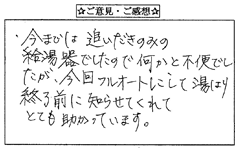 ☆ご意見・ご感想☆
・今までは 追いだきのみの
給湯器でしたので何かと不便でし
たが、今回フルオートにして湯はり
終了前に知らせてくれて
とても助かっています。